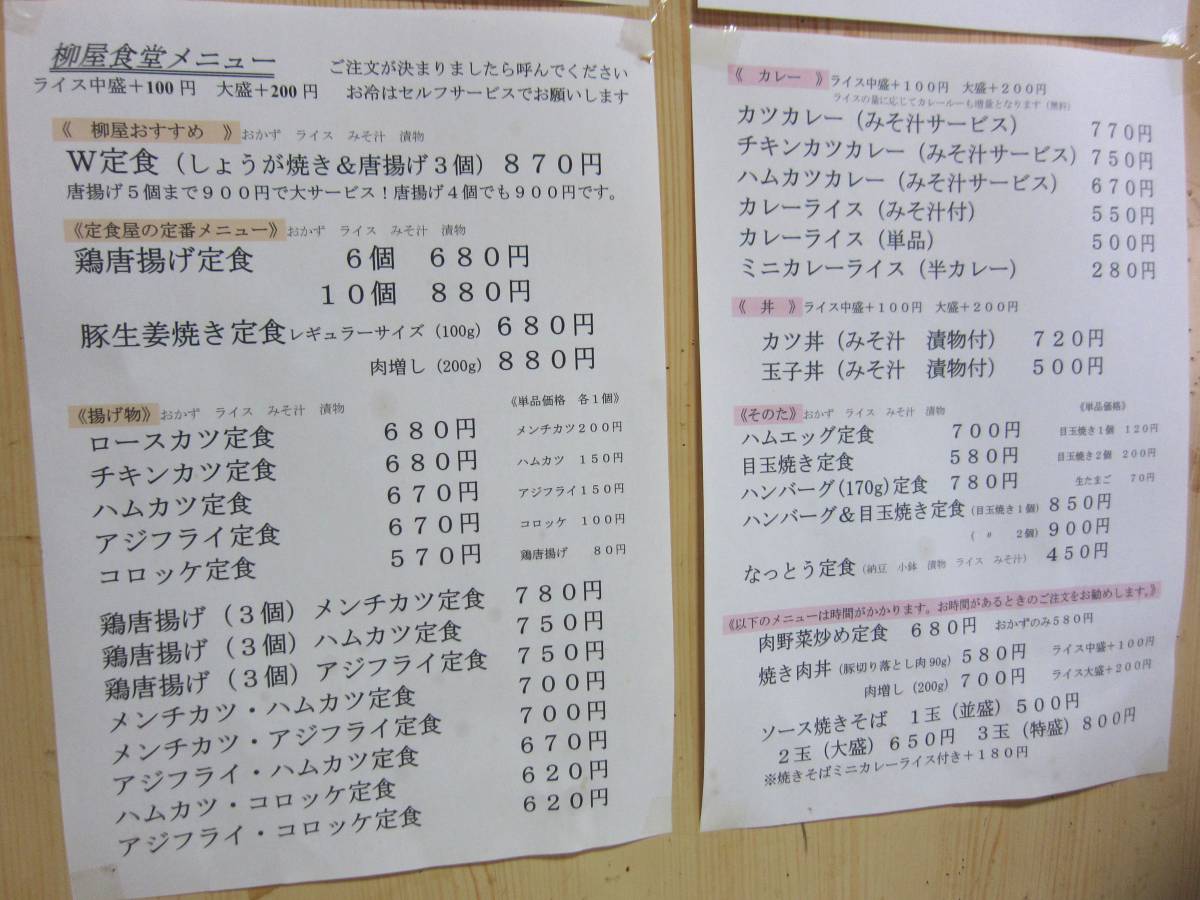 柳屋食堂メニュー
ご注文が決まりましたら呼んでください
ライス中盛+100円 大盛+200円 お冷はセルフサービスでお願いします
《 柳屋おすすめ 》おかず ライス みそ汁 漬物
W定食(しょうが焼き&唐揚げ3個)870円
唐揚げ5個まで900円で大サービス!唐揚げ4個でも900円です。
《定食屋の定番メニュー》おかず ライス みそ汁 漬物
鶏唐揚げ定食 6個 680円
10個 880円
豚生姜焼き定食レギュラーサイズ(100g) 680円
肉増し(200g) 880円
《揚げ物》おかず ライス みそ汁 漬物 《単品価格 各1個》
ロースカツ定食 680円 メンチカツ200円
チキンカツ定食 680円 ハムカツ 150円
ハムカツ定食 670円 アジフライ150円
アジフライ定食 670円 コロッケ 100円
コロッケ定食 570円 鶏唐揚げ 80円
鶏唐揚げ(3個)メンチカツ定食 780円
鶏唐揚げ(3個)ハムカツ定食 750円
鶏唐揚げ(3個)アジフライ定食 750円
メンチカツ・ハムカツ定食 700円
メンチカツ・アジフライ定食 700円
アジフライ・ハムカツ定食 670円
ハムカツ・コロッケ定食 620円
アジフライ・コロッケ定食 620円
《 カレー 》ライス中盛+100円 大盛+200円
ライスの量に応じてカレールーも増量となります(無料)
カツカレー(みそ汁サービス) 770円
チキンカツカレー(みそ汁サービス) 750円
ハムカツカレー(みそ汁サービス) 670円
カレーライス(みそ汁付) 550円
カレーライス(単品) 500円
ミニカレーライス(半カレー) 280円
《 丼 》ライス中盛+100円 大盛+200円
カツ丼(みそ汁 漬物付) 720円
玉子丼(みそ汁 漬物付) 500円
《そのた》おかず ライス みそ汁 漬物 《単品価格》
ハムエッグ定食 700円 目玉焼き1個 120円
目玉焼き定食 580円 目玉焼き2個 200円
ハンバーグ(170g)定食 780円 生たまご 70円
ハンバーグ&目玉焼き定食(目玉焼き1個) 850円
(〃 2個) 900円
なっとう定食(納豆 小鉢 漬物 ライス みそ汁) 450円
《以下のメニューは時間がかかります。お時間があるときのご注文をお勧めします。》
肉野菜炒め定食 680円 おかずのみ580円
焼き肉丼(豚切り落とし肉90g) 580円 ライス中盛+100円
肉増し(200g) 700円 ライス大盛+200円
ソース焼きそば 1玉(並盛)500円
2玉(大盛)650円 3玉(特盛)800円
※焼きそばミニカレーライス付き+180円